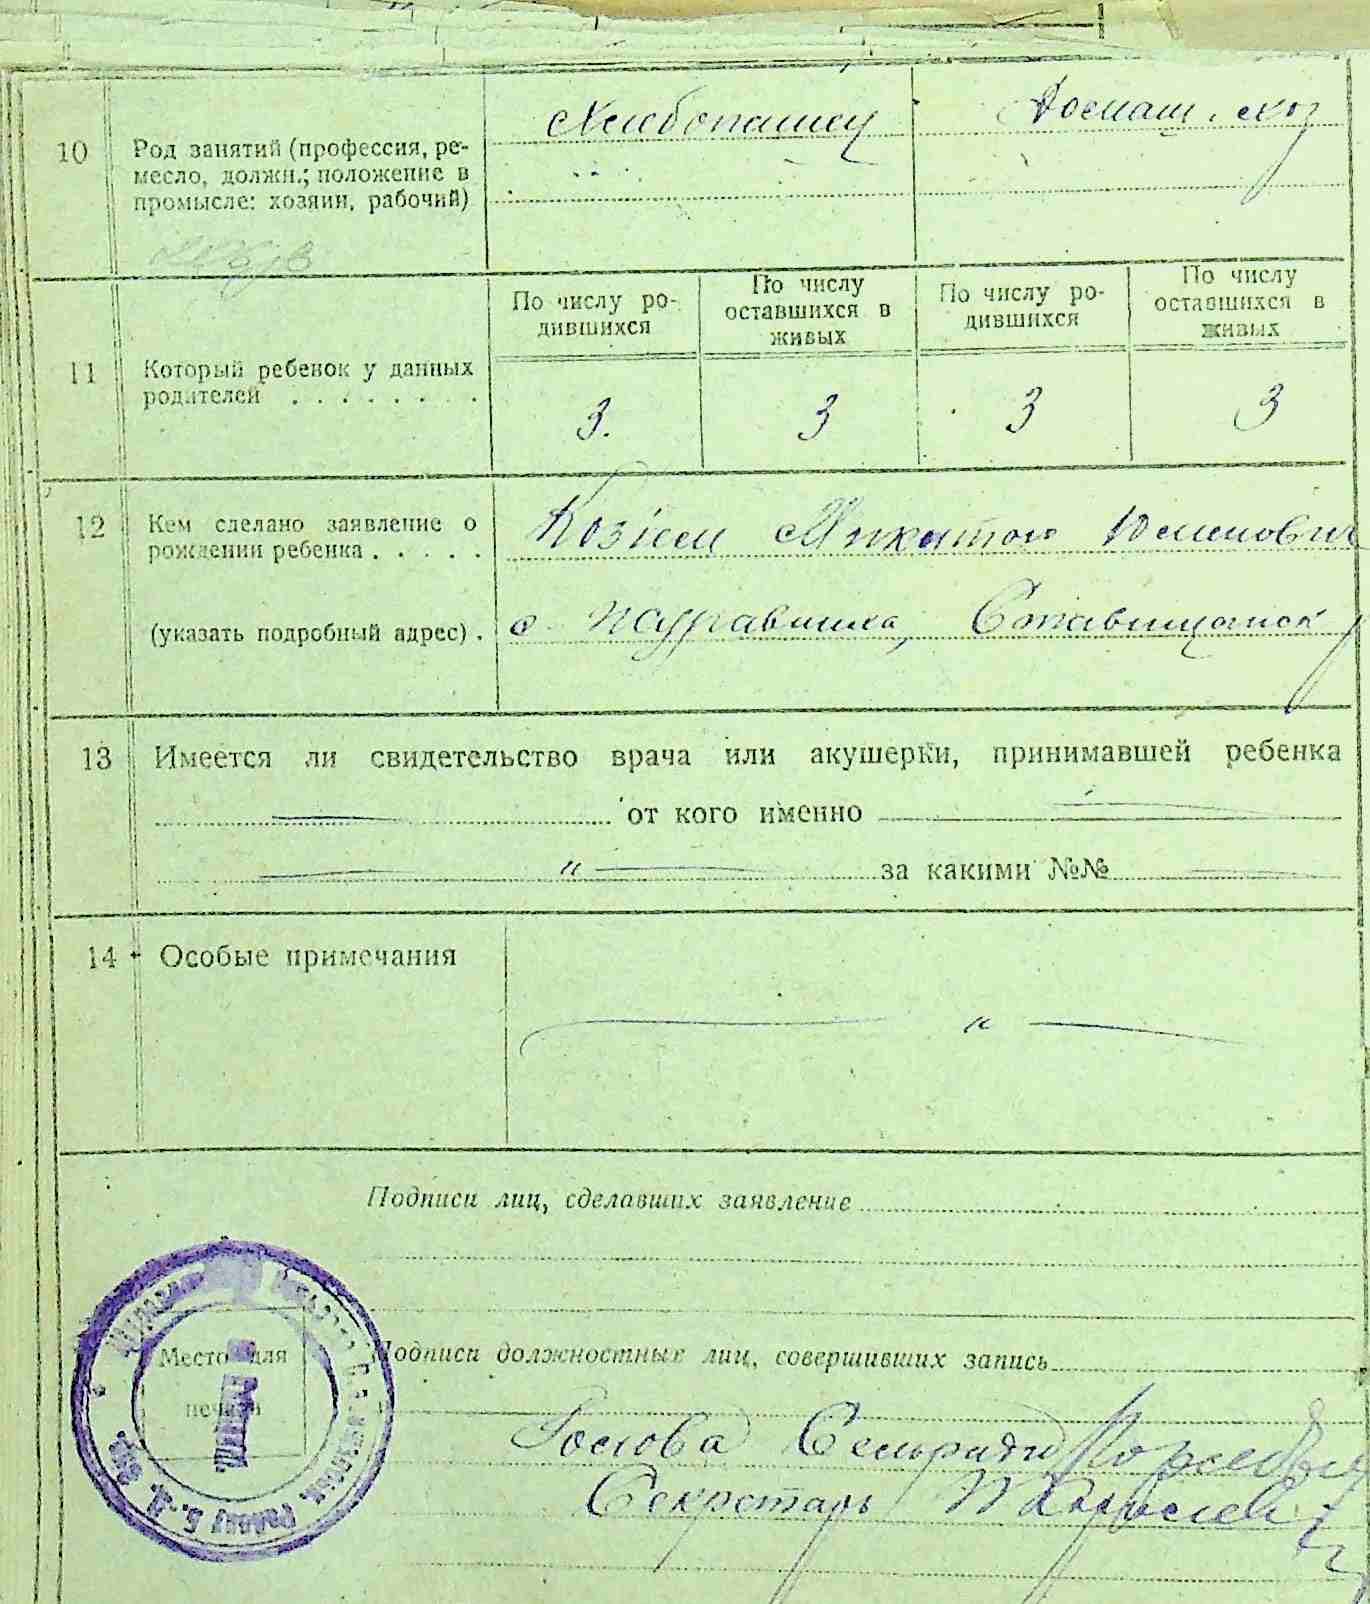 10 Род занятий (профессия, ре-
месло, должн.; положение в
промысле: хозяин, рабочий)
Хлебопашец
Домаш. хоз
11 Который ребенок у данных
родителей . . . . . . . .
По числу ро-
дившихся
По числу
оставшихся в
живых
По числу ро-
дившихся
По числу
оставшихся в
живых
3. 3 3 3
12 Кем сделано заявление о
рождении ребенка . . . . .
(указать подробный адрес) .
Микитою
с. Журавлиха, Ставищанск
13 Имеется ли свидетельство врача или акушерки, принимавшей ребенка
— от кого именно —
— " — за какими №№ —
14 Особые примечания
— " —
Подписи лиц, сделавших заявление
Место для
печати
Подписи должностных лиц, совершивших запись
Голова Сельради
Секретарь